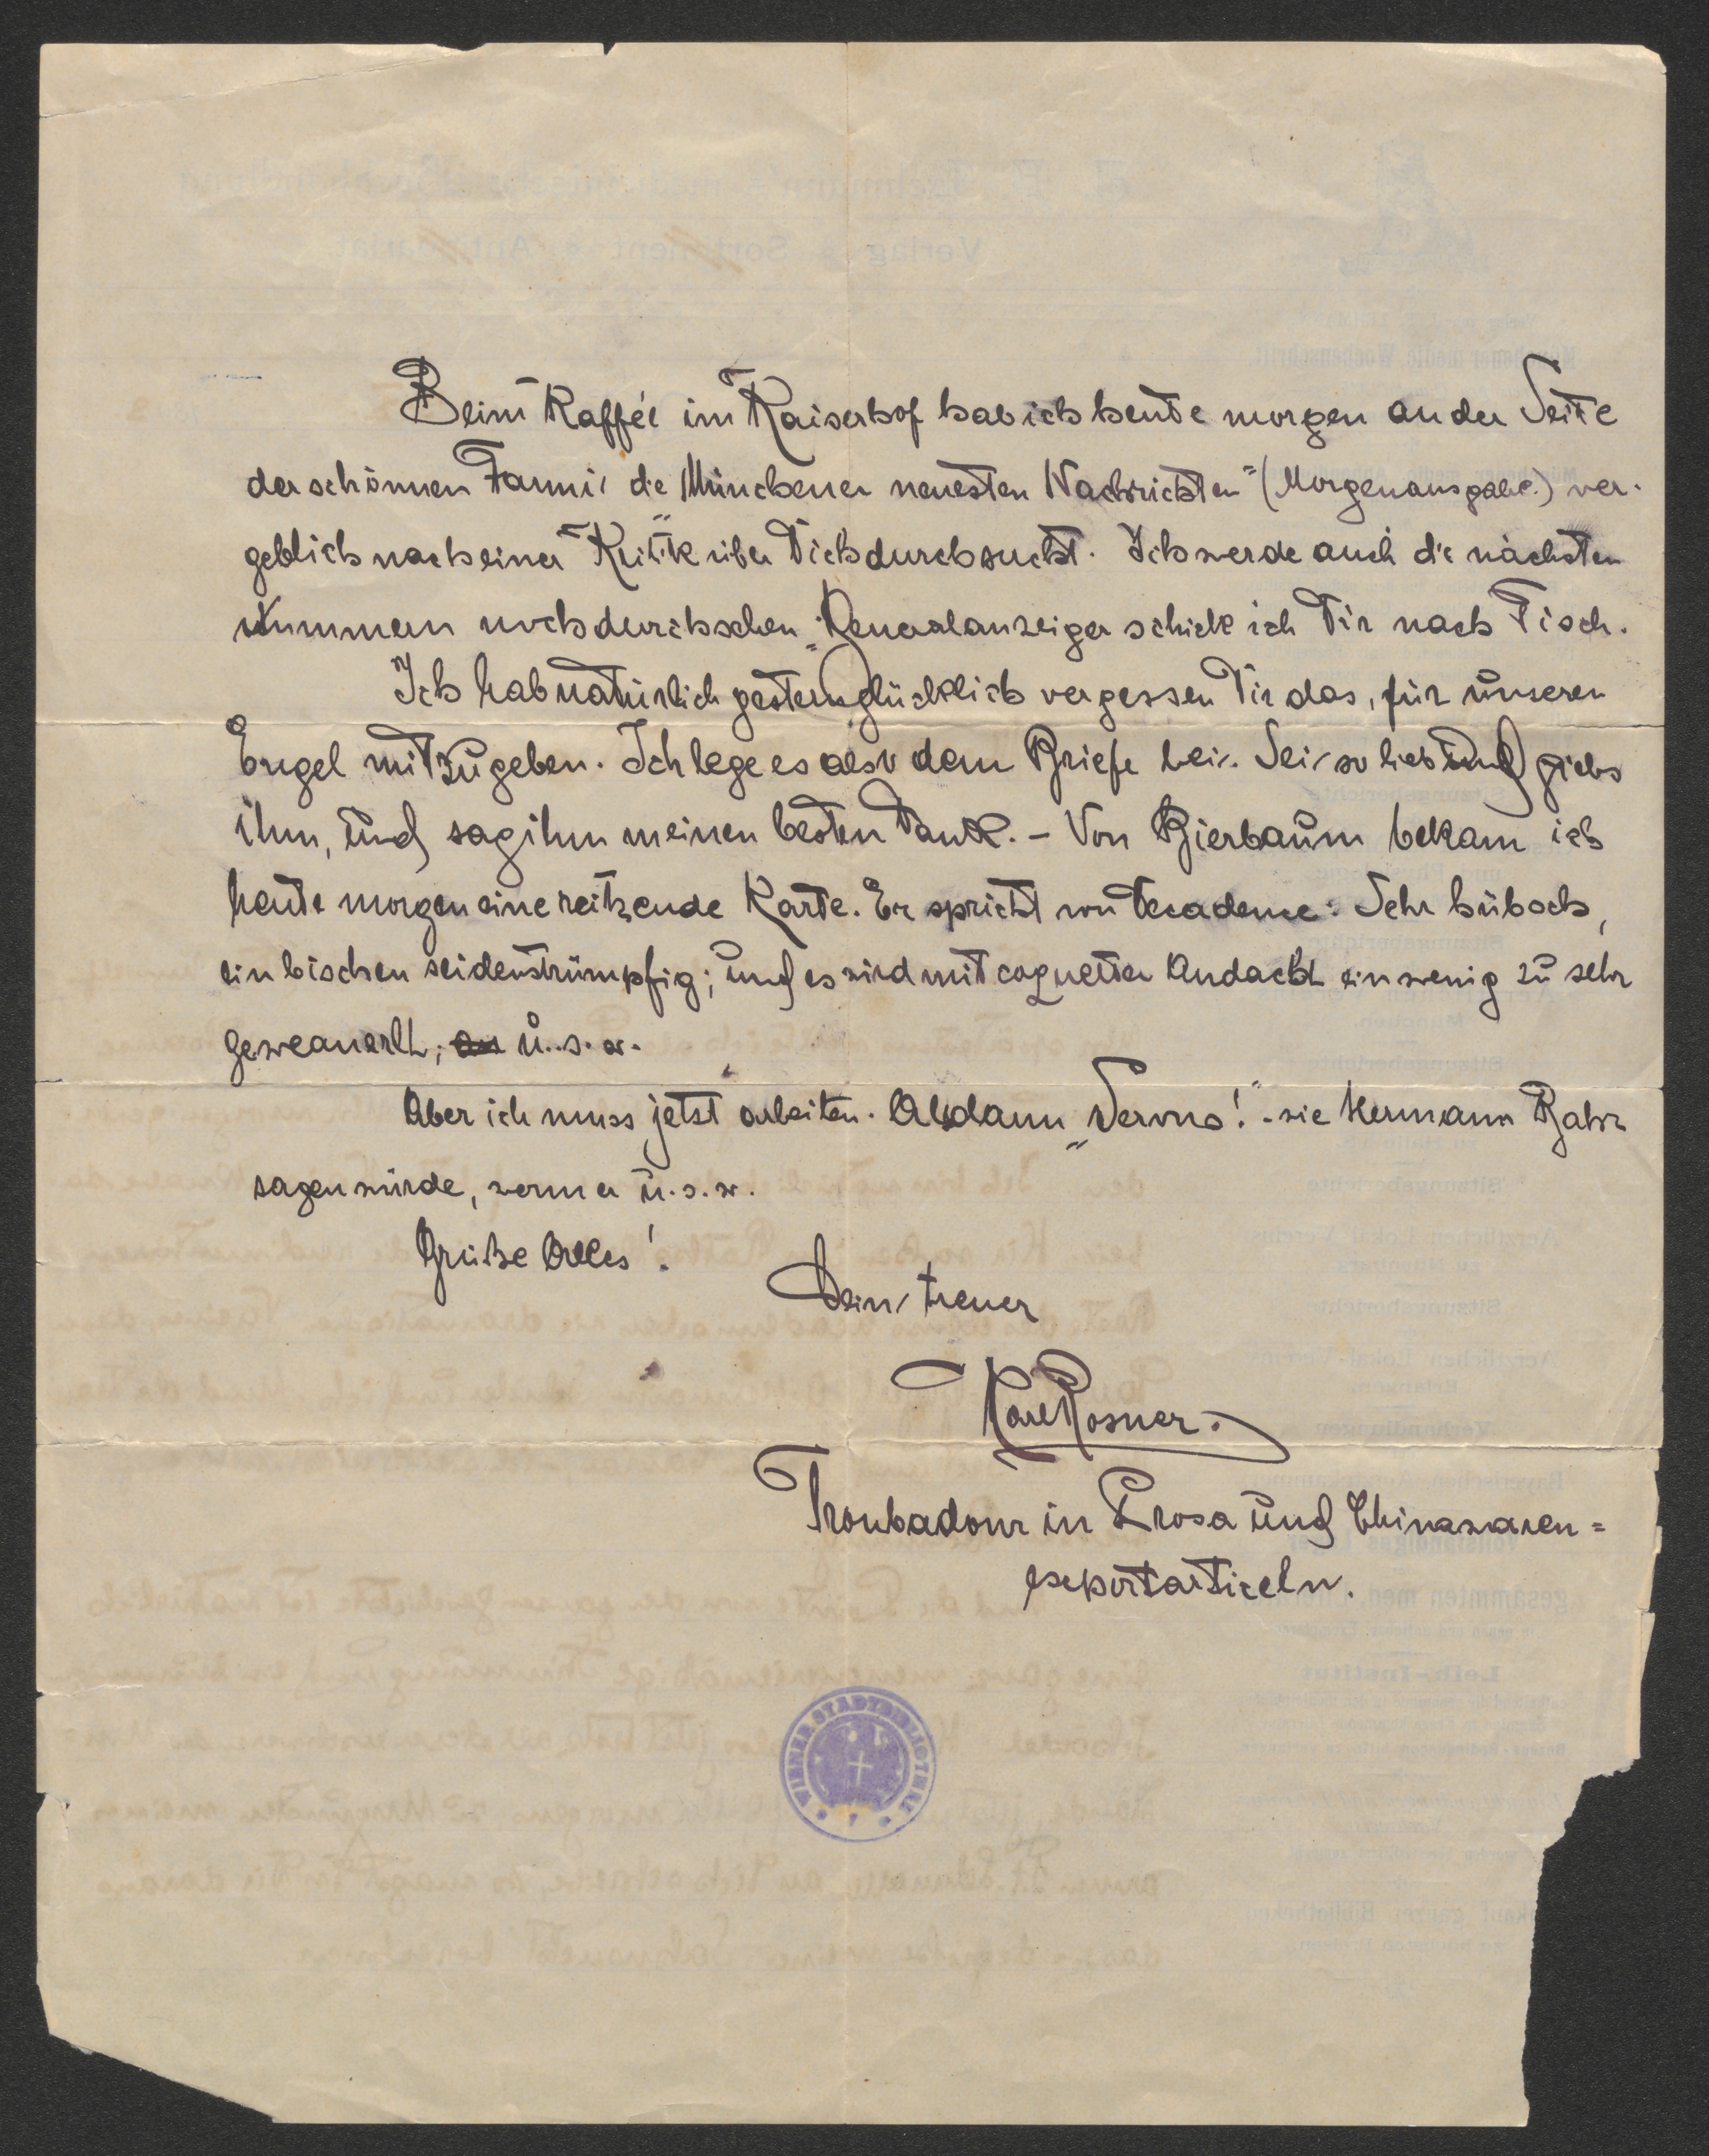 Beim Kaffée im Kaiserhof hab ich heute morgen an der Seite
der schönnen Fanni die Münchener neuesten Nachrichten" (Morgenausgabe.) ver-
geblich nach einer Kritik über Dich durchsucht. Ich werde auch die nächsten
Nummern noch durchsehen „Generalanzeiger schick ich Dir nach Tisch.
Ich hab natürlich gestern glücklich vergessen Dir das, für unseren
Engel mitzugeben. Ich lege es also dem Briefe bei. Sei so lieb und giebs
ihm, und sag ihm meinen besten Dank. – Von Bierbaum bekam ich
heute morgen eine reitzende Karte. Er spricht von Decadence: Sehr hübsch,
ein bischen seidenstrümpfig; und es wird mit coquetter Andacht ein wenig zu sehr
geweanerlt; u. s. w.
Aber ich muss jetzt arbeiten. Alsdann „Servus!" wie Hermann Bahr
sagen würde, wenn er u. s. w.
Grüße Alles!
Dein treuer
Karl Rosner.
Troubadour in Prosa und Chinawaren=
exportarticeln.
WIENER STADTBIBLIOTHEK